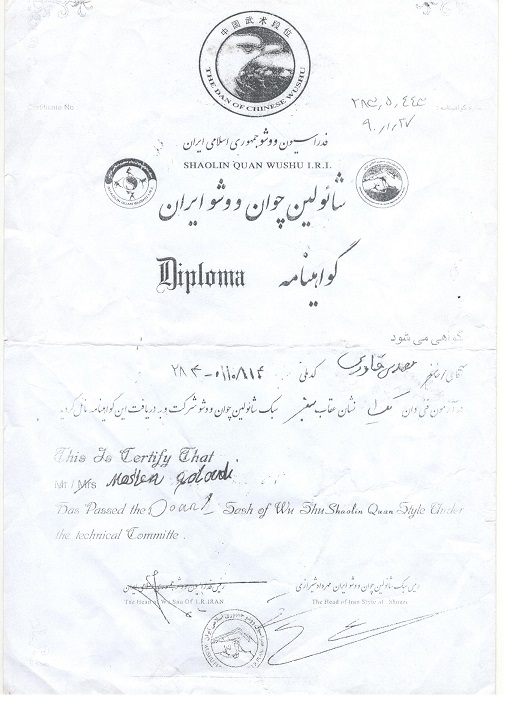 中国武术段位
THE DAN OF CHINESE WUSHU
Certificate No
۹۰,۱,۲۷
فدراسیون ووشو جمهوری اسلامی ایران
SHAOLIN QUAN WUSHU I.R.I.
شائولین چوان ووشو ایران
Diploma گواهینامه
گواهی می شود
کد ملی
در آزمون فنی دان نشان عقاب سبک شائولین چوان ووشو شرکت و به دریافت این گواهینامه نائل گردید
This Is Certify That
Mr / Mrs
Has Passed the Sash of Wu Shu Shaolin Quan Style Under
the technical Committe .
رئیس فدراسیون ووشو جمهوری اسلامی ایران رئیس سبک شائولین چوان ووشو ایران مهرداد شیرازی
The Head of Wu Shu Of I.R.IRAN The Head of Iran